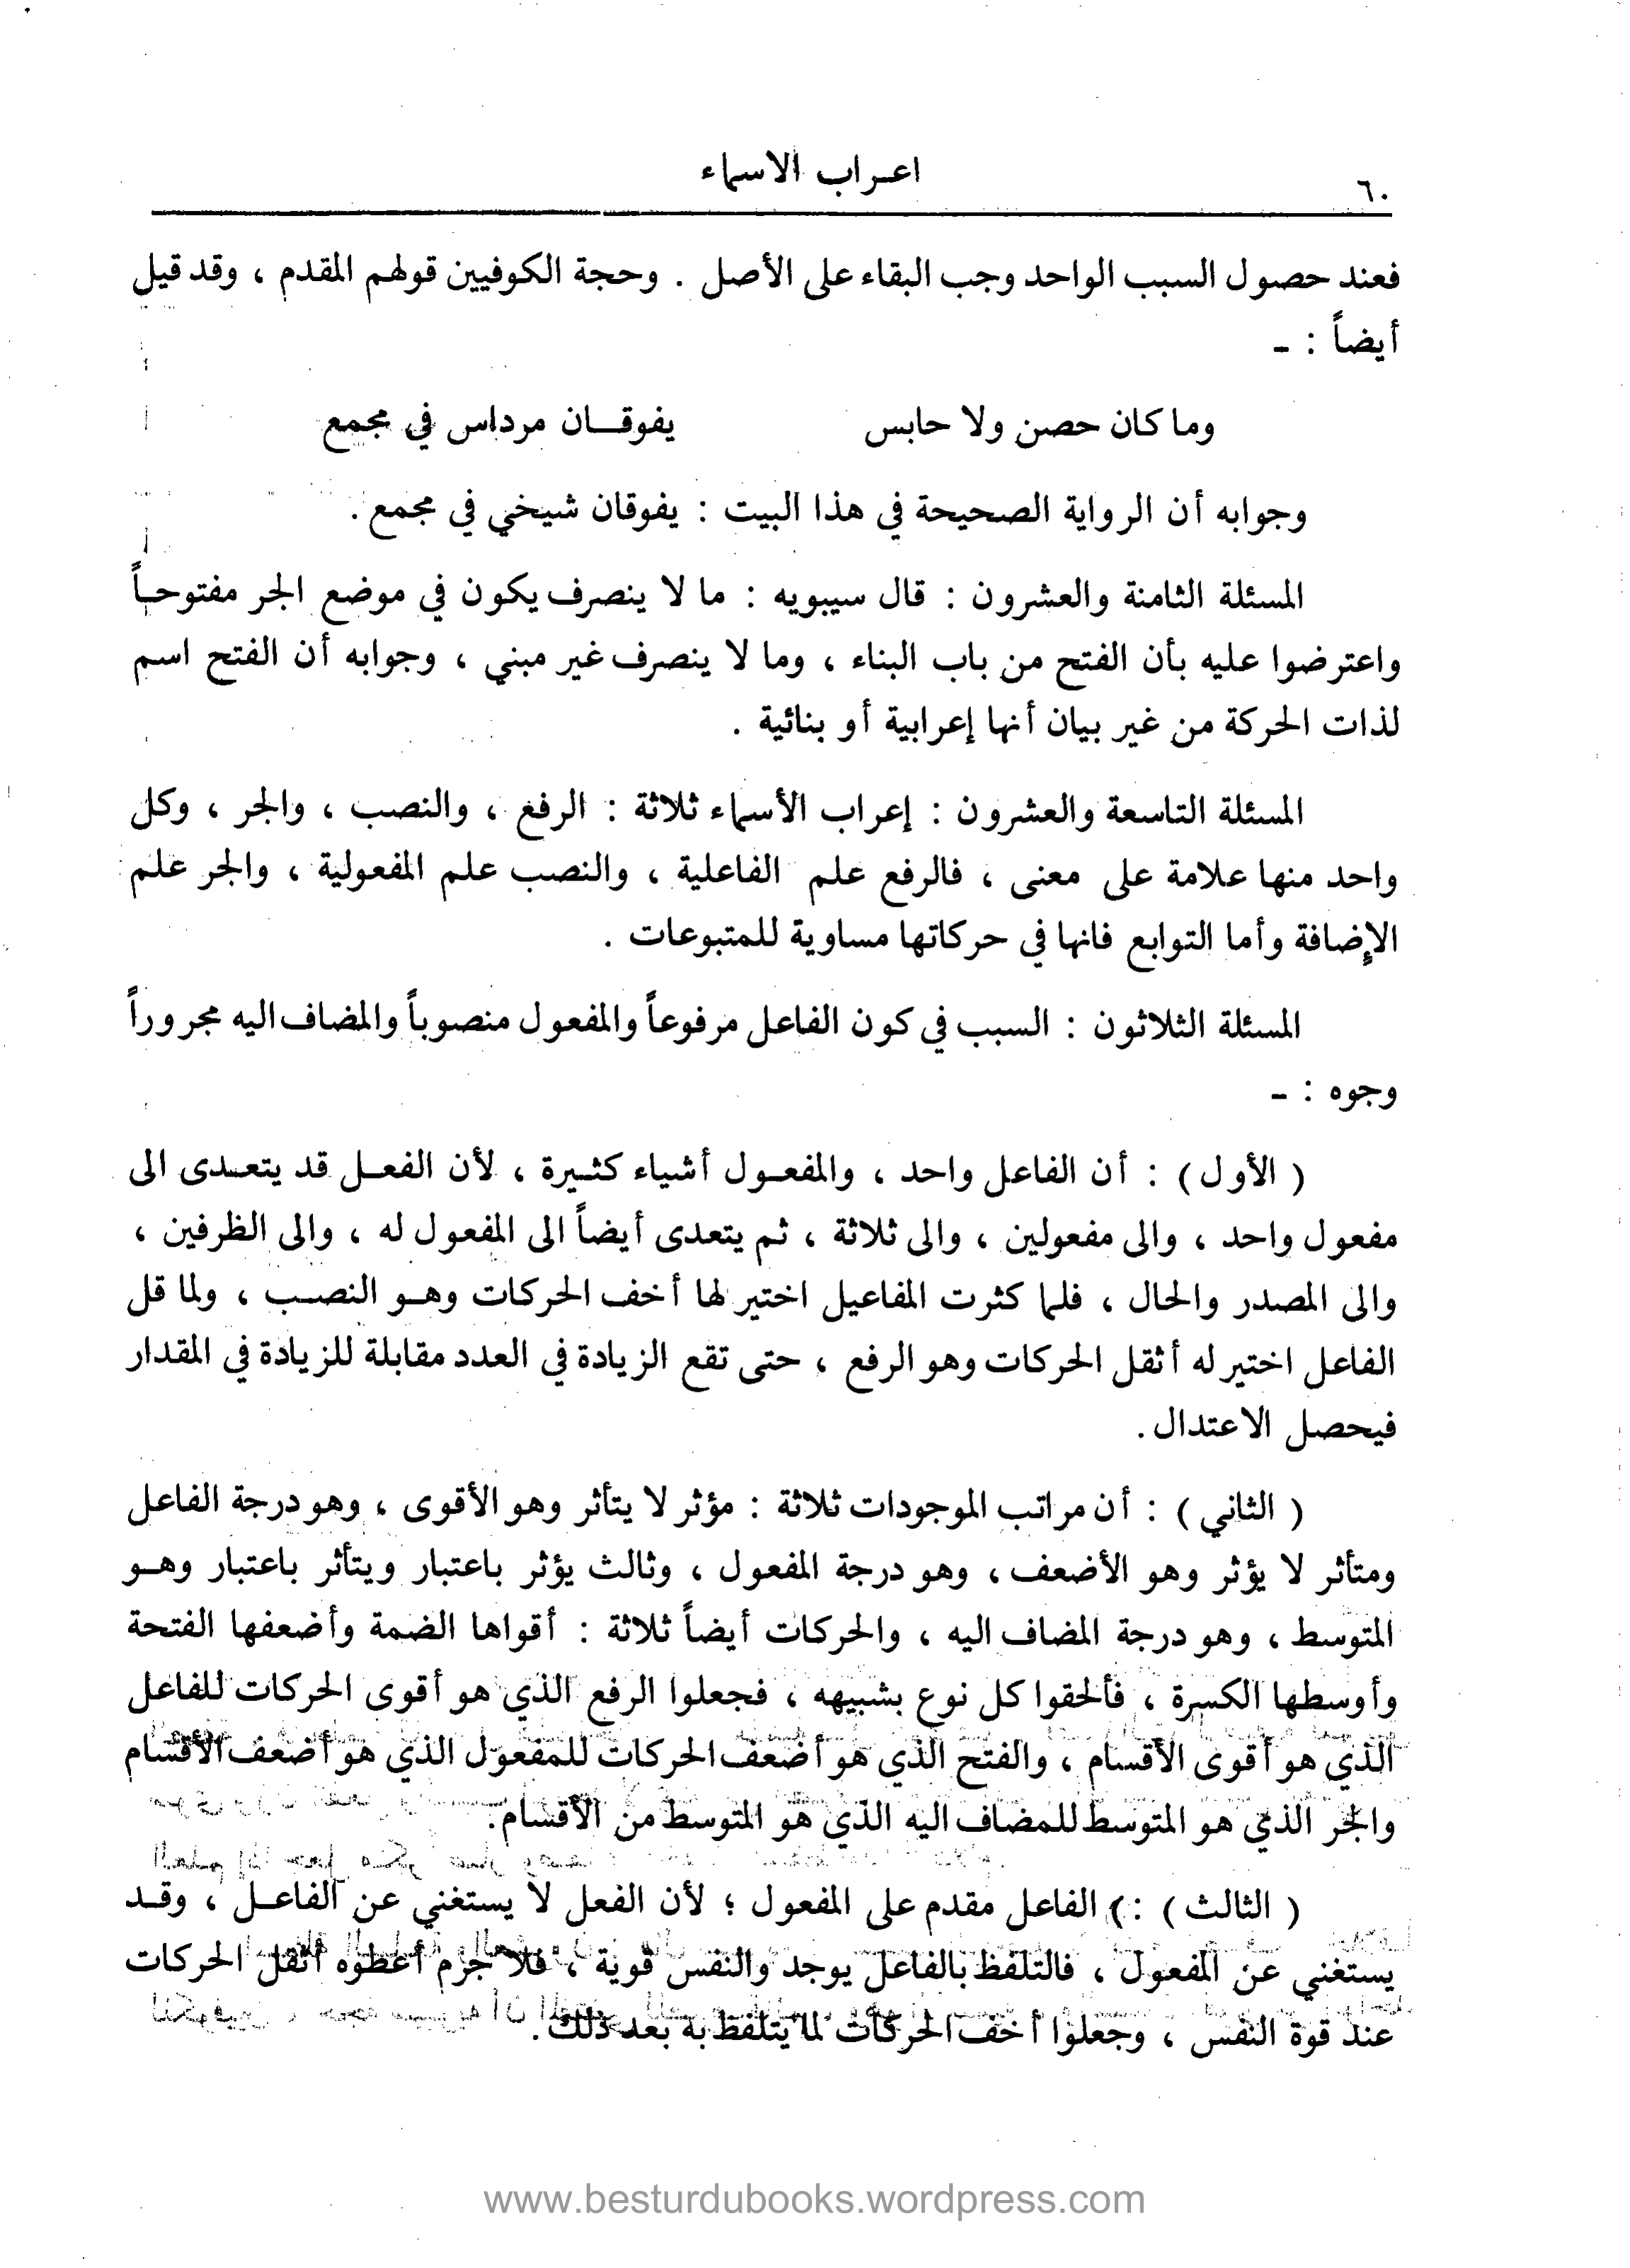 اعراب الاسماء
٦٠
فعند حصول السبب الواحد وجب البقاء على الأصل . وحجة الكوفيين قولهم المقدم ، وقد قيل
أيضاً : -
وما كان حصن ولا حابس يفوقان مرداس في مجمع
وجوابه أن الرواية الصحيحة في هذا البيت : يفوقان شيخي في مجمع .
المسئلة الثامنة والعشرون : قال سيبويه : ما لا ينصرف يكون في موضع الجر مفتوحاً
واعترضوا عليه بأن الفتح من باب البناء ، وما لا ينصرف غير مبني ، وجوابه أن الفتح اسم
لذات الحركة من غير بيان أنها إعرابية أو بنائية .
المسئلة التاسعة والعشرون : إعراب الأسماء ثلاثة : الرفع ، والنصب ، والجر ، وكل
واحد منها علامة على معنى ، فالرفع علم الفاعلية ، والنصب علم المفعولية ، والجر علم
الإضافة وأما التوابع فانها في حركاتها مساوية للمتبوعات .
المسئلة الثلاثون : السبب في كون الفاعل مرفوعاً والمفعول منصوباً والمضاف اليه مجروراً
وجوه : -
( الأول ) : أن الفاعل واحد ، والمفعول أشياء كثيرة ، لأن الفعل قد يتعدى الى
مفعول واحد ، والى مفعولين ، والى ثلاثة ، ثم يتعدى أيضاً الى المفعول له ، والى الظرفين ،
والى المصدر والحال ، فلما كثرت المفاعيل اختير لها أخف الحركات وهو النصب ، ولما قل
الفاعل اختير له أثقل الحركات وهو الرفع ، حتى تقع الزيادة في العدد مقابلة للزيادة في المقدار
فيحصل الاعتدال .
( الثاني ) : أن مراتب الموجودات ثلاثة : مؤثر لا يتأثر وهو الأقوى ، وهو درجة الفاعل
ومتأثر لا يؤثر وهو الأضعف ، وهو درجة المفعول ، وثالث يؤثر باعتبار ويتأثر باعتبار وهو
المتوسط ، وهو درجة المضاف اليه ، والحركات أيضاً ثلاثة : أقواها الضمة وأضعفها الفتحة
وأوسطها الكسرة ، فألحقوا كل نوع بشبيهه ، فجعلوا الرفع الذي هو أقوى الحركات للفاعل
الذي هو أقوى الأقسام ، والفتح الذي هو أضعف الحركات للمفعول الذي هو أضعف الأقسام
والجر الذي هو المتوسط للمضاف اليه الذي هو المتوسط من الأقسام .
( الثالث ) : ) الفاعل مقدم على المفعول ؛ لأن الفعل لا يستغني عن الفاعل ، وقد
يستغني عن المفعول ، فالتلفظ بالفاعل يوجد والنفس قوية ، فلا جرم أعطوه أثقل الحركات
عند قوة النفس ، وجعلوا أخف الحركات لما يتلفظ به بعد ذلك .
www.besturdubooks.wordpress.com